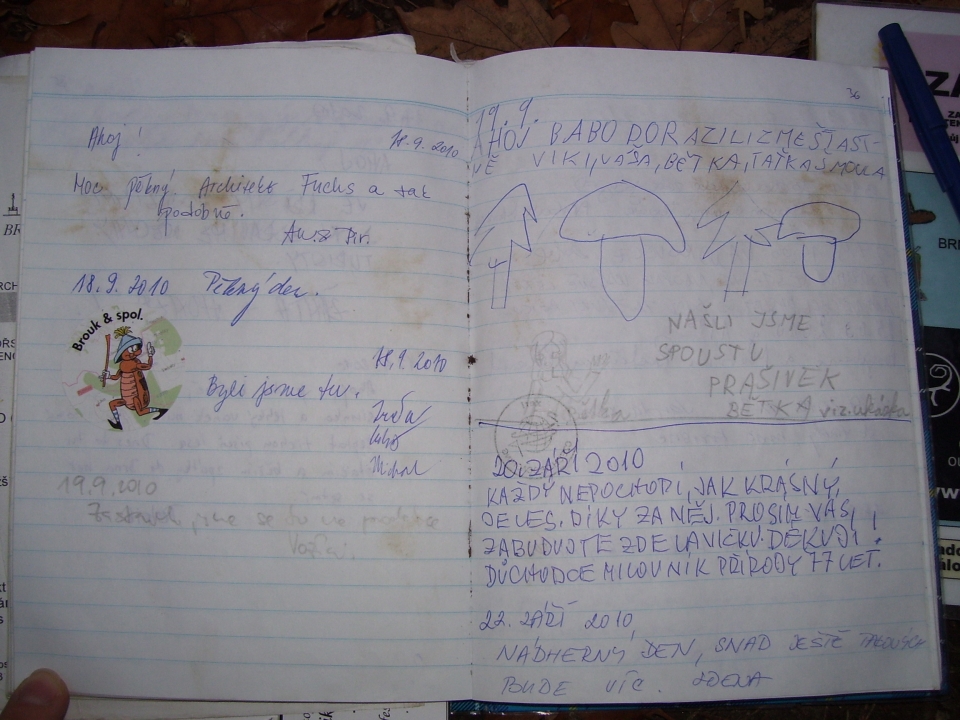 Ahoj!
18.9.2010
Moc pěkný. Architekt Fuchs a tak
podobně.
18.9.2010 Pěkný den.
Brouk & spol.
18.9.2010
Byli jsme tu.
Michal
19.9.2010
jsme se tu na
36
19.9.
AHOJ BABO DORAZILIZMEŠŤAST-
VĚ VIKI, VÁŠA, BĚTKA, TAŤKA SMULA
NAŠLI JSME
SPOUSTU
PRAŠIVEK
BĚTKA viz. ukázka
20. ZÁŘÍ 2010
KAŽDÝ NEPOCHOPÍ, JAK KRÁSNÝ
JE LES. DÍKY ZA NĚJ. PROSÍM VÁS,
ZABUDUJTE ZDE LAVIČKU. DĚKUJI!
DŮCHODCE MILOVNÍK PŘÍRODY 77 LET.
22. ZÁŘÍ 2010
NÁDHERNÝ DEN, SNAD JEŠTĚ TAKOVÝCH
BUDE VÍC. ZDENA